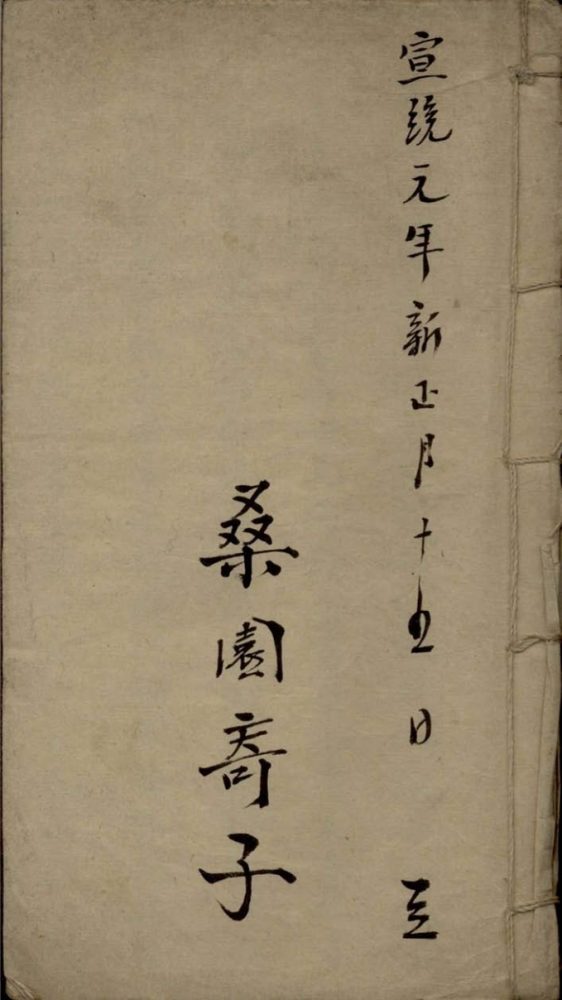 宣統元年新正月十五日立
桑園寄子